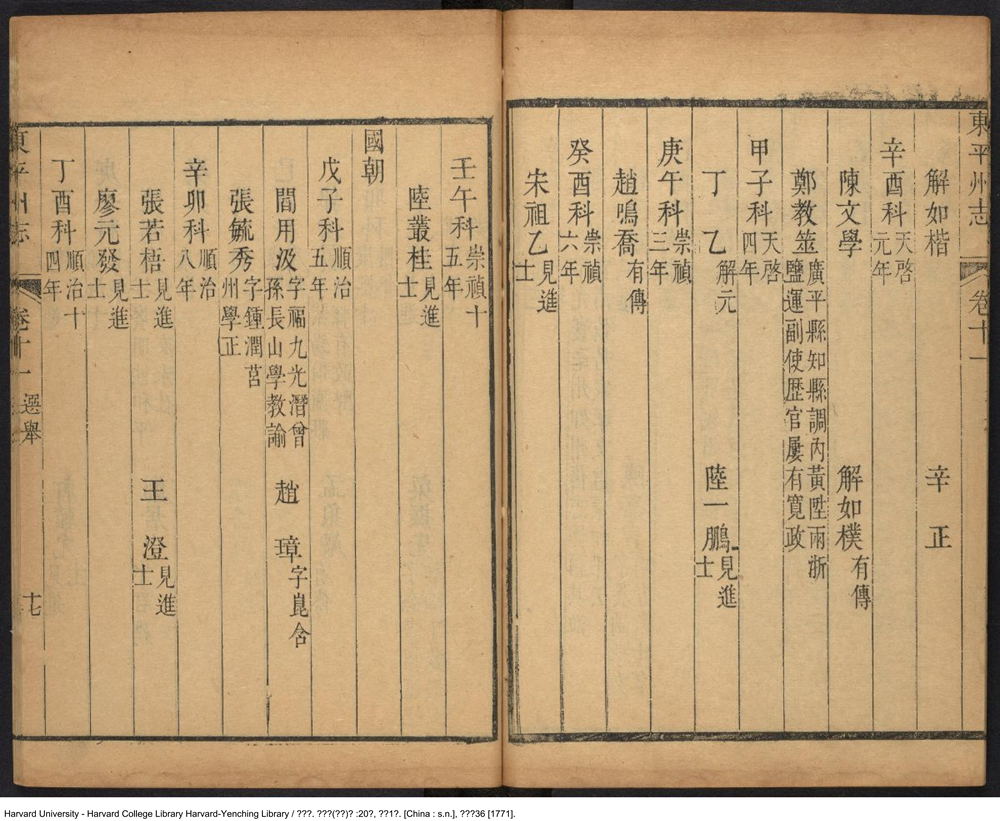 東平州志 卷十一
解如楷 辛正
辛酉科天啓元年
陳文學 解如樸有傳
鄭教筮廣平縣知縣調內黃陞兩浙鹽運副使歷官屢有寬政
甲子科天啓四年
丁乙解元 陸一鵬見進士
庚午科崇禎三年
趙鳴喬有傳
癸酉科崇禎六年
宋祖乙見進士
壬午科崇禎十五年
陸叢桂見進士
國朝
戊子科順治五年
閻用汲字福九光潛曾孫長山學教諭 趙璋字崑含
張毓秀字鍾潤莒州學正
辛卯科順治八年
張若梧見進士 王澄見進士
廖元發見進士
丁酉科順治十四年
東平州志 卷十一 選舉 十七
Harvard University - Harvard College Library Harvard-Yenching Library / ???. ???(??)? :20?, ??1?. [China : s.n.], ???36 [1771].